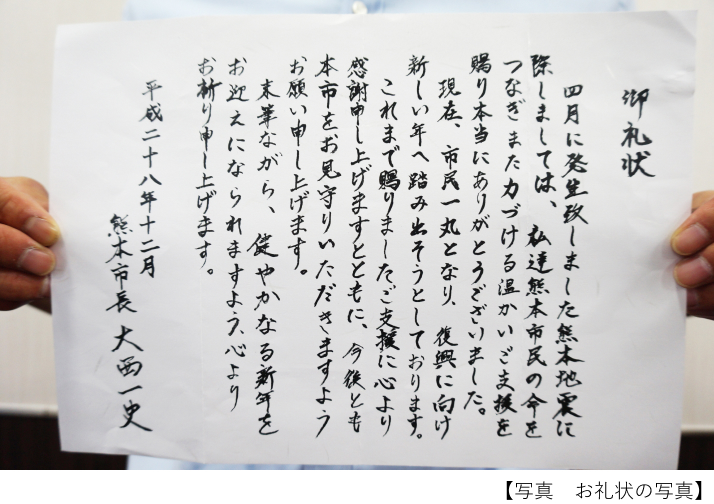 御礼状
四月に発生致しました熊本地震に
際しましては、私達熊本市民の命を
つなぎまた力づける温かいご支援を
賜り本当にありがとうございました。
現在、市民一丸となり、復興に向け
新しい年へ踏み出そうとしております。
これまで賜りましたご支援に心より
感謝申し上げますとともに、今後とも
本市をお見守りいただきますよう
お願い申し上げます。
末筆ながら、健やかなる新年を
お迎えになられますよう、心より
お祈り申し上げます。
平成二十八年十二月
熊本市長 大西一史
【写真 お礼状の写真】